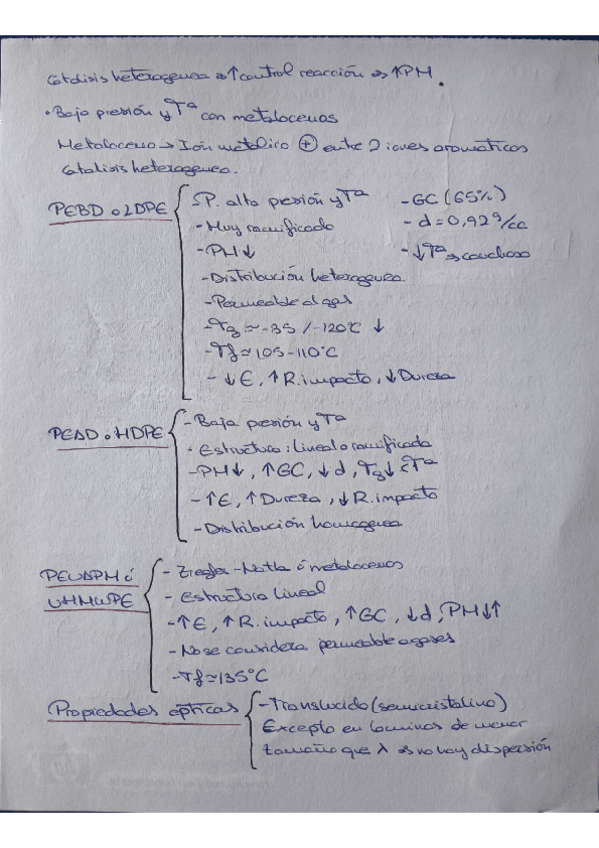 Catálisis heterogenea → ↑control reacción → ↑PM.
• Baja presión y Tª con metalocenos
Metaloceno → Ión metálico ⊕ entre 2 iones aromáticos
Catálisis heterogenea.
PEBD o LDPE
SP. alta presión y Tª
- Muy ramificado
- PM↓
- Distribución heterogenea
- Permeable al gas
- Tg ≈ -35 / -120°C ↓
- Tf ≈ 105-110°C
- ↓E, ↑R.impacto, ↓Dureza
- GC (65%)
- d = 0,92 g/cc
- ↓Tª → cauchoso
PEAD o HDPE
- Baja presión y Tª
- Estructura: Lineal o ramificada
- PM↓, ↑GC, ↓d, Tg↓ Tª
- ↑E, ↑Dureza, ↓R.impacto
- Distribución homogenea
PEUAPM ó
UHMWPE
- Ziegler-Natta ó metalocenos
- Estructura Lineal
- ↑E, ↑R.impacto, ↑GC, ↓d, PM↓↑
- No se considera permeable a gases
- Tf ≈ 135°C
Propiedades ópticas
- Translucido (semicristalino)
Excepto en laminas de menor
tamaño que λ → no hay dispersión